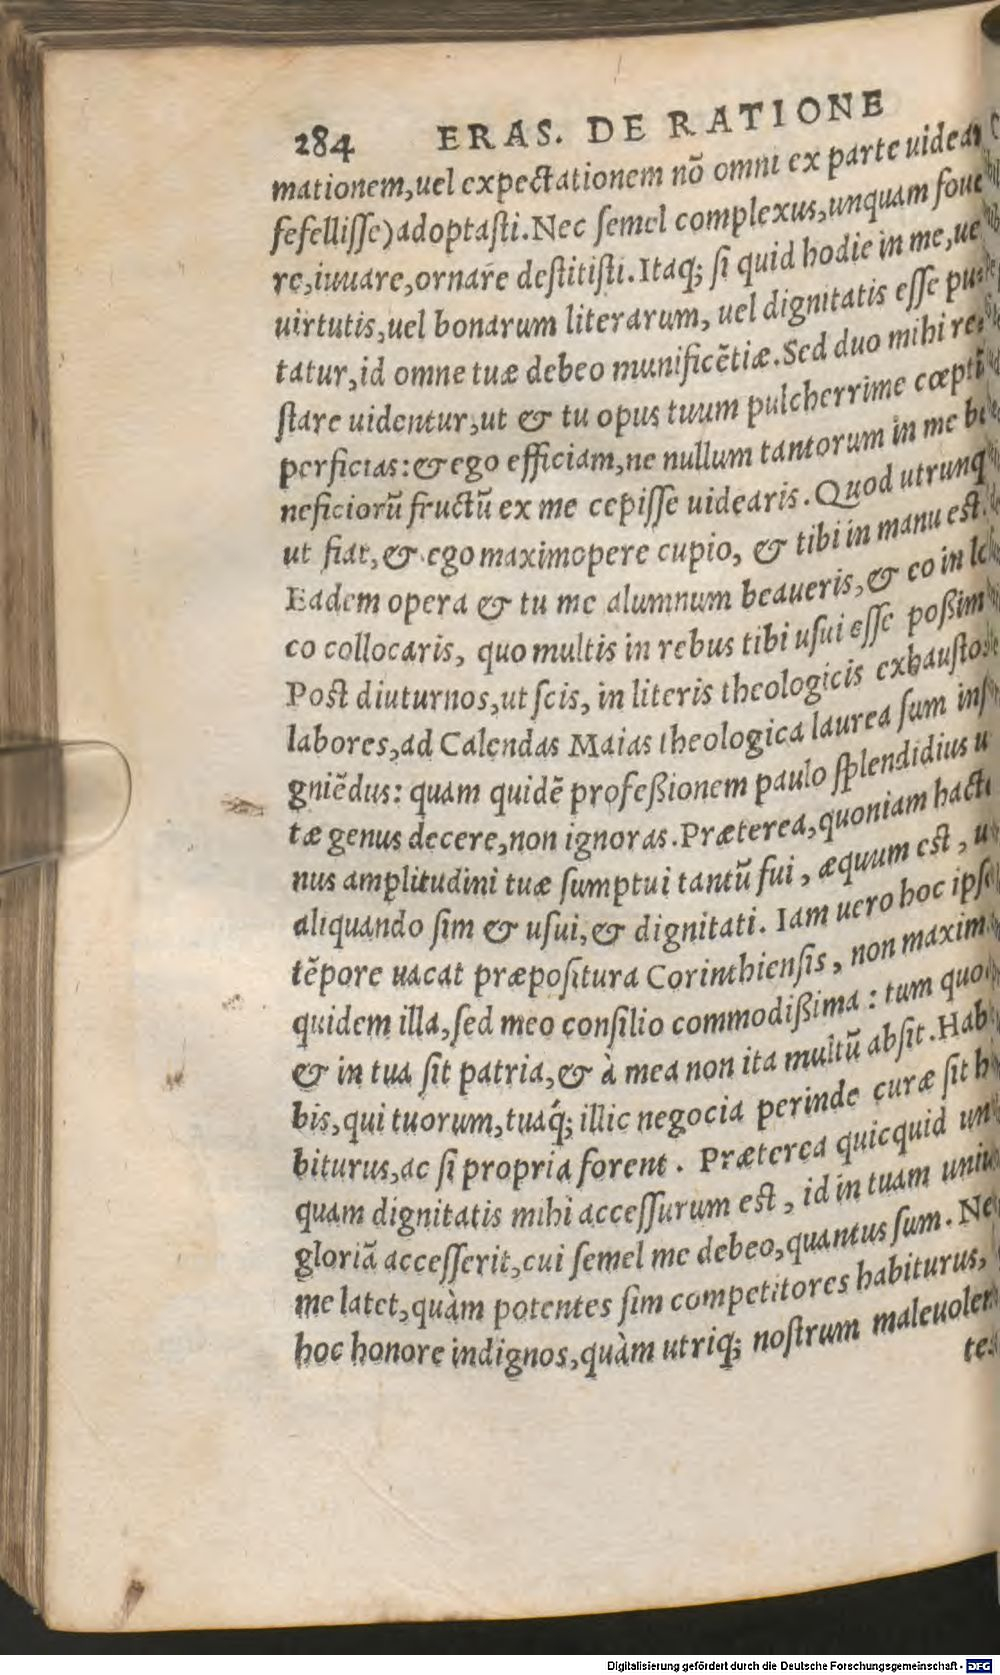 284 ERAS. DE RATIONE
mationem,uel expectationem nõ omni ex parte uidear
fefellisse)adoptasti.Nec semel complexus,unquam foue
re,iuuare,ornare destitisti.Itaq; si quid hodie in me,uel
uirtutis,uel bonarum literarum, uel dignitatis esse pu-
tatur,id omne tuæ debeo munificẽtiæ.Sed duo mihi re-
stare uidentur,ut & tu opus tuum pulcherrime cœptũ
perficias:& ego efficiam,ne nullum tantorum in me be
neficiorũ fructũ ex me cepisse uidearis.Quod utrunq
ut fiat,& ego maximopere cupio, & tibi in manu est.
Eadem opera & tu me alumnum beaueris,& eo in lo
co collocaris, quo multis in rebus tibi usui esse poßim
Post diuturnos,ut scis, in literis theologicis exhaustos
labores,ad Calendas Maias theologica laurea sum insi
gniẽdus: quam quidẽ profeßionem paulo splendidius ui
tæ genus decere,non ignoras.Præterea,quoniam hacte
nus amplitudini tuæ sumptui tantũ fui, æquum est, ut
aliquando sim & usui,& dignitati. Iam uero hoc ipso
tẽpore uacat præpositura Corinthiensis, non maxima
quidem illa,sed meo consilio commodißima : tum quod
& in tua sit patria,& à mea non ita multũ absit.Habe
bis,qui tuorum,tuaq́; illic negocia perinde curæ sit ha
biturus,ac si propria forent. Præterea quicquid un
quam dignitatis mihi accessurum est, id in tuam unius
gloriã accesserit,cui semel me debeo,quantus sum. Nec
me latet,quàm potentes sim competitores habiturus,
hoc honore indignos,quàm utriq; nostrum maleuolen
tes
Digitalisierung gefördert durch die Deutsche Forschungsgemeinschaft - DFG